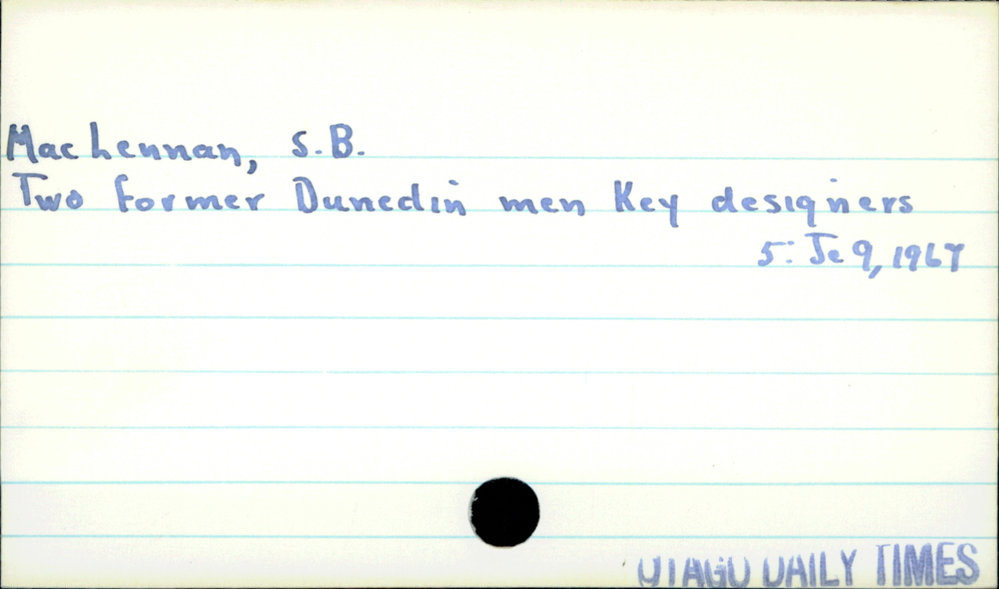 MacLennan, S.B.
Two former Dunedin men Key designers
5: Je 9, 1967
OTAGO DAILY TIMES